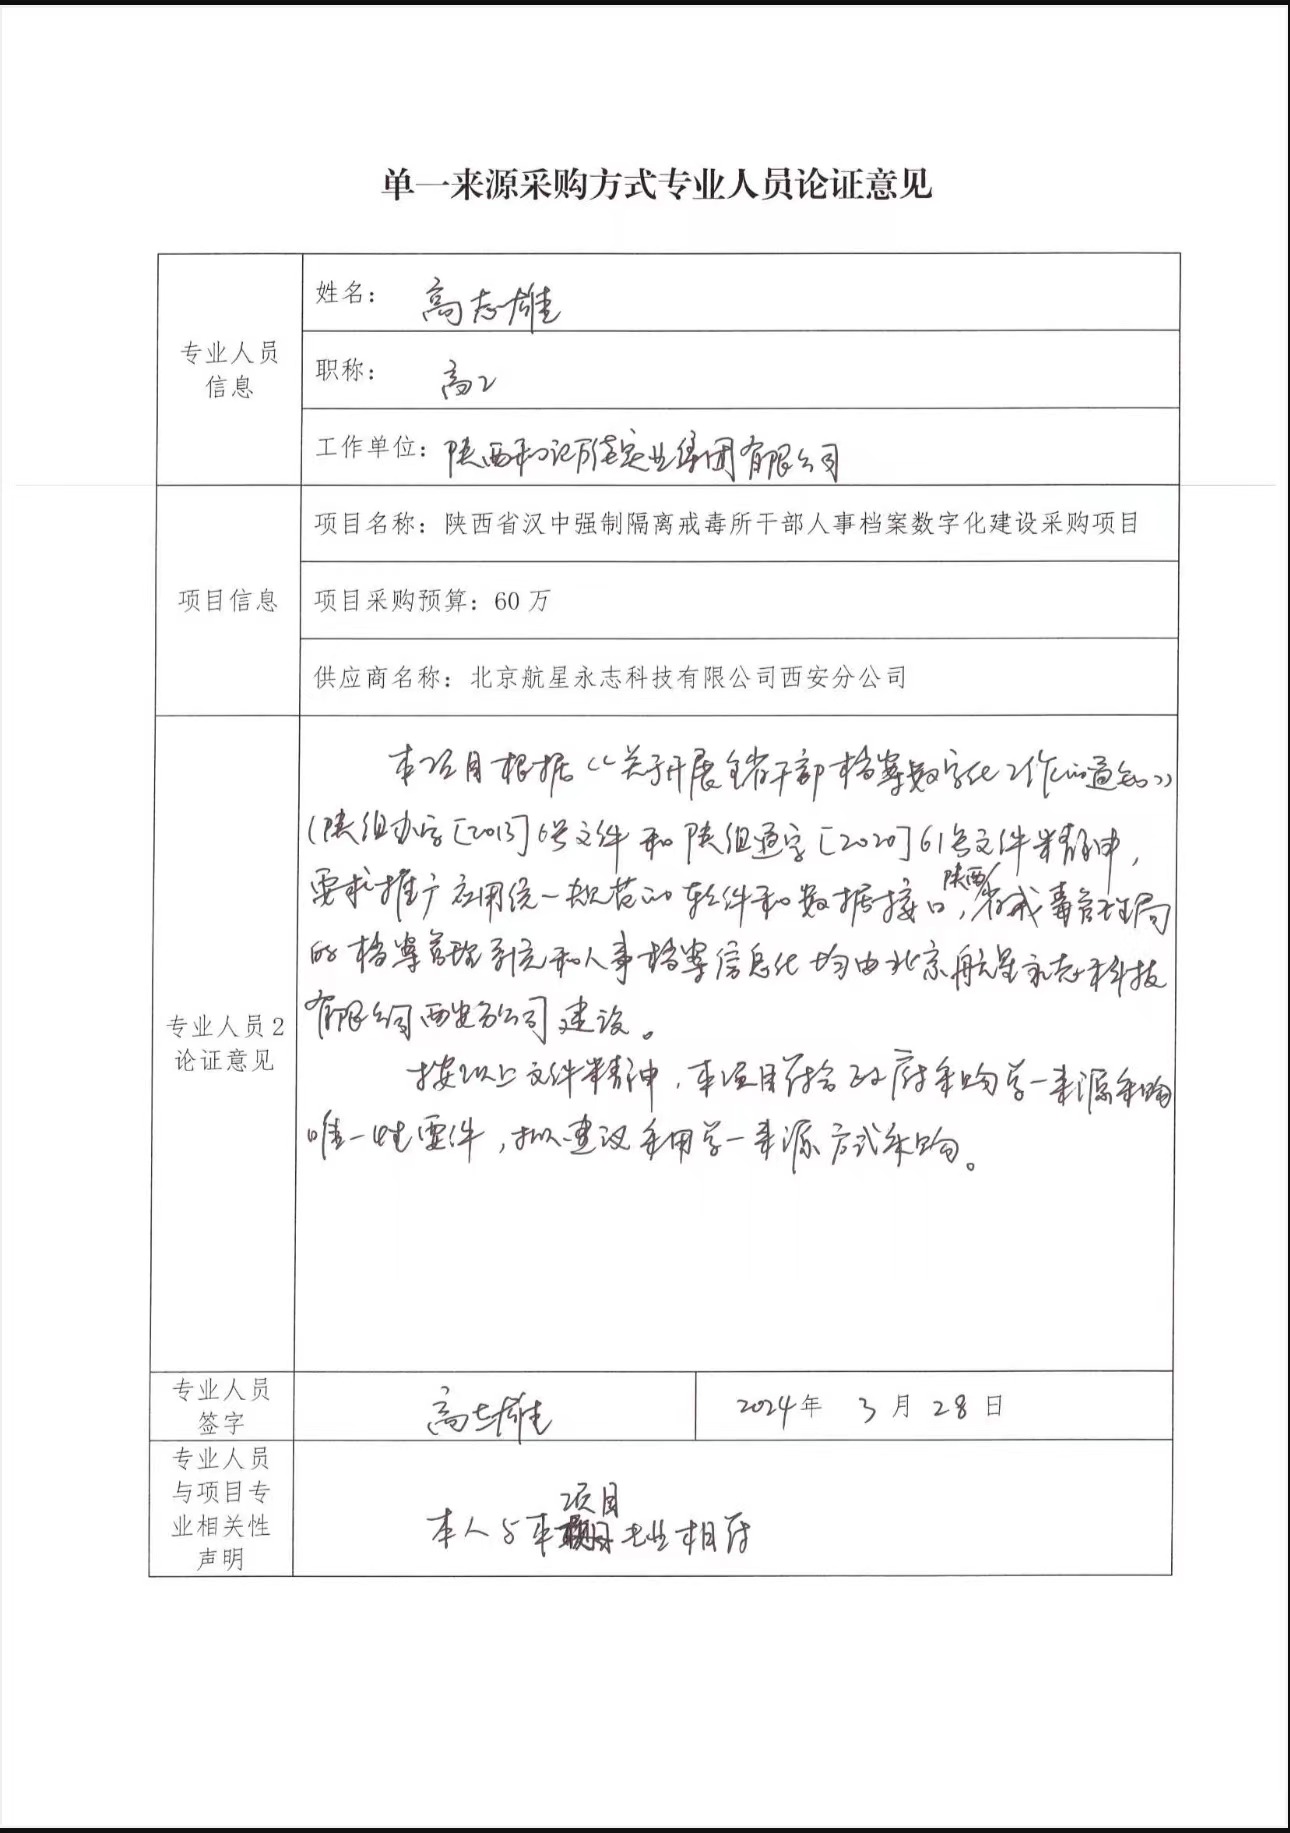 单一来源采购方式专业人员论证意见
专业人员
信息
姓名： 高志雄
职称： 高工
工作单位：陕西和记万佳实业集团有限公司
项目信息
项目名称：陕西省汉中强制隔离戒毒所干部人事档案数字化建设采购项目
项目采购预算：60万
供应商名称：北京航星永志科技有限公司西安分公司
专业人员2
论证意见
本项目根据《关于开展全省干部档案数字化工作的通知》
(陕组办字[2013]6号文件和陕组通字[2020]61号文件精神，
要求推广应用统一规范的软件和数据接口，陕西省戒毒管理局
的档案管理系统和人事档案信息化均由北京航星永志科技
有限公司西安分公司建设。
按以上文件精神，本项目符合政府采购单一来源采购
唯一性要件，拟建议采用单一来源方式采购。
专业人员
签字
高志雄
2024年 3月28日
专业人员
与项目专
业相关性
声明
本人与本项目专业相符